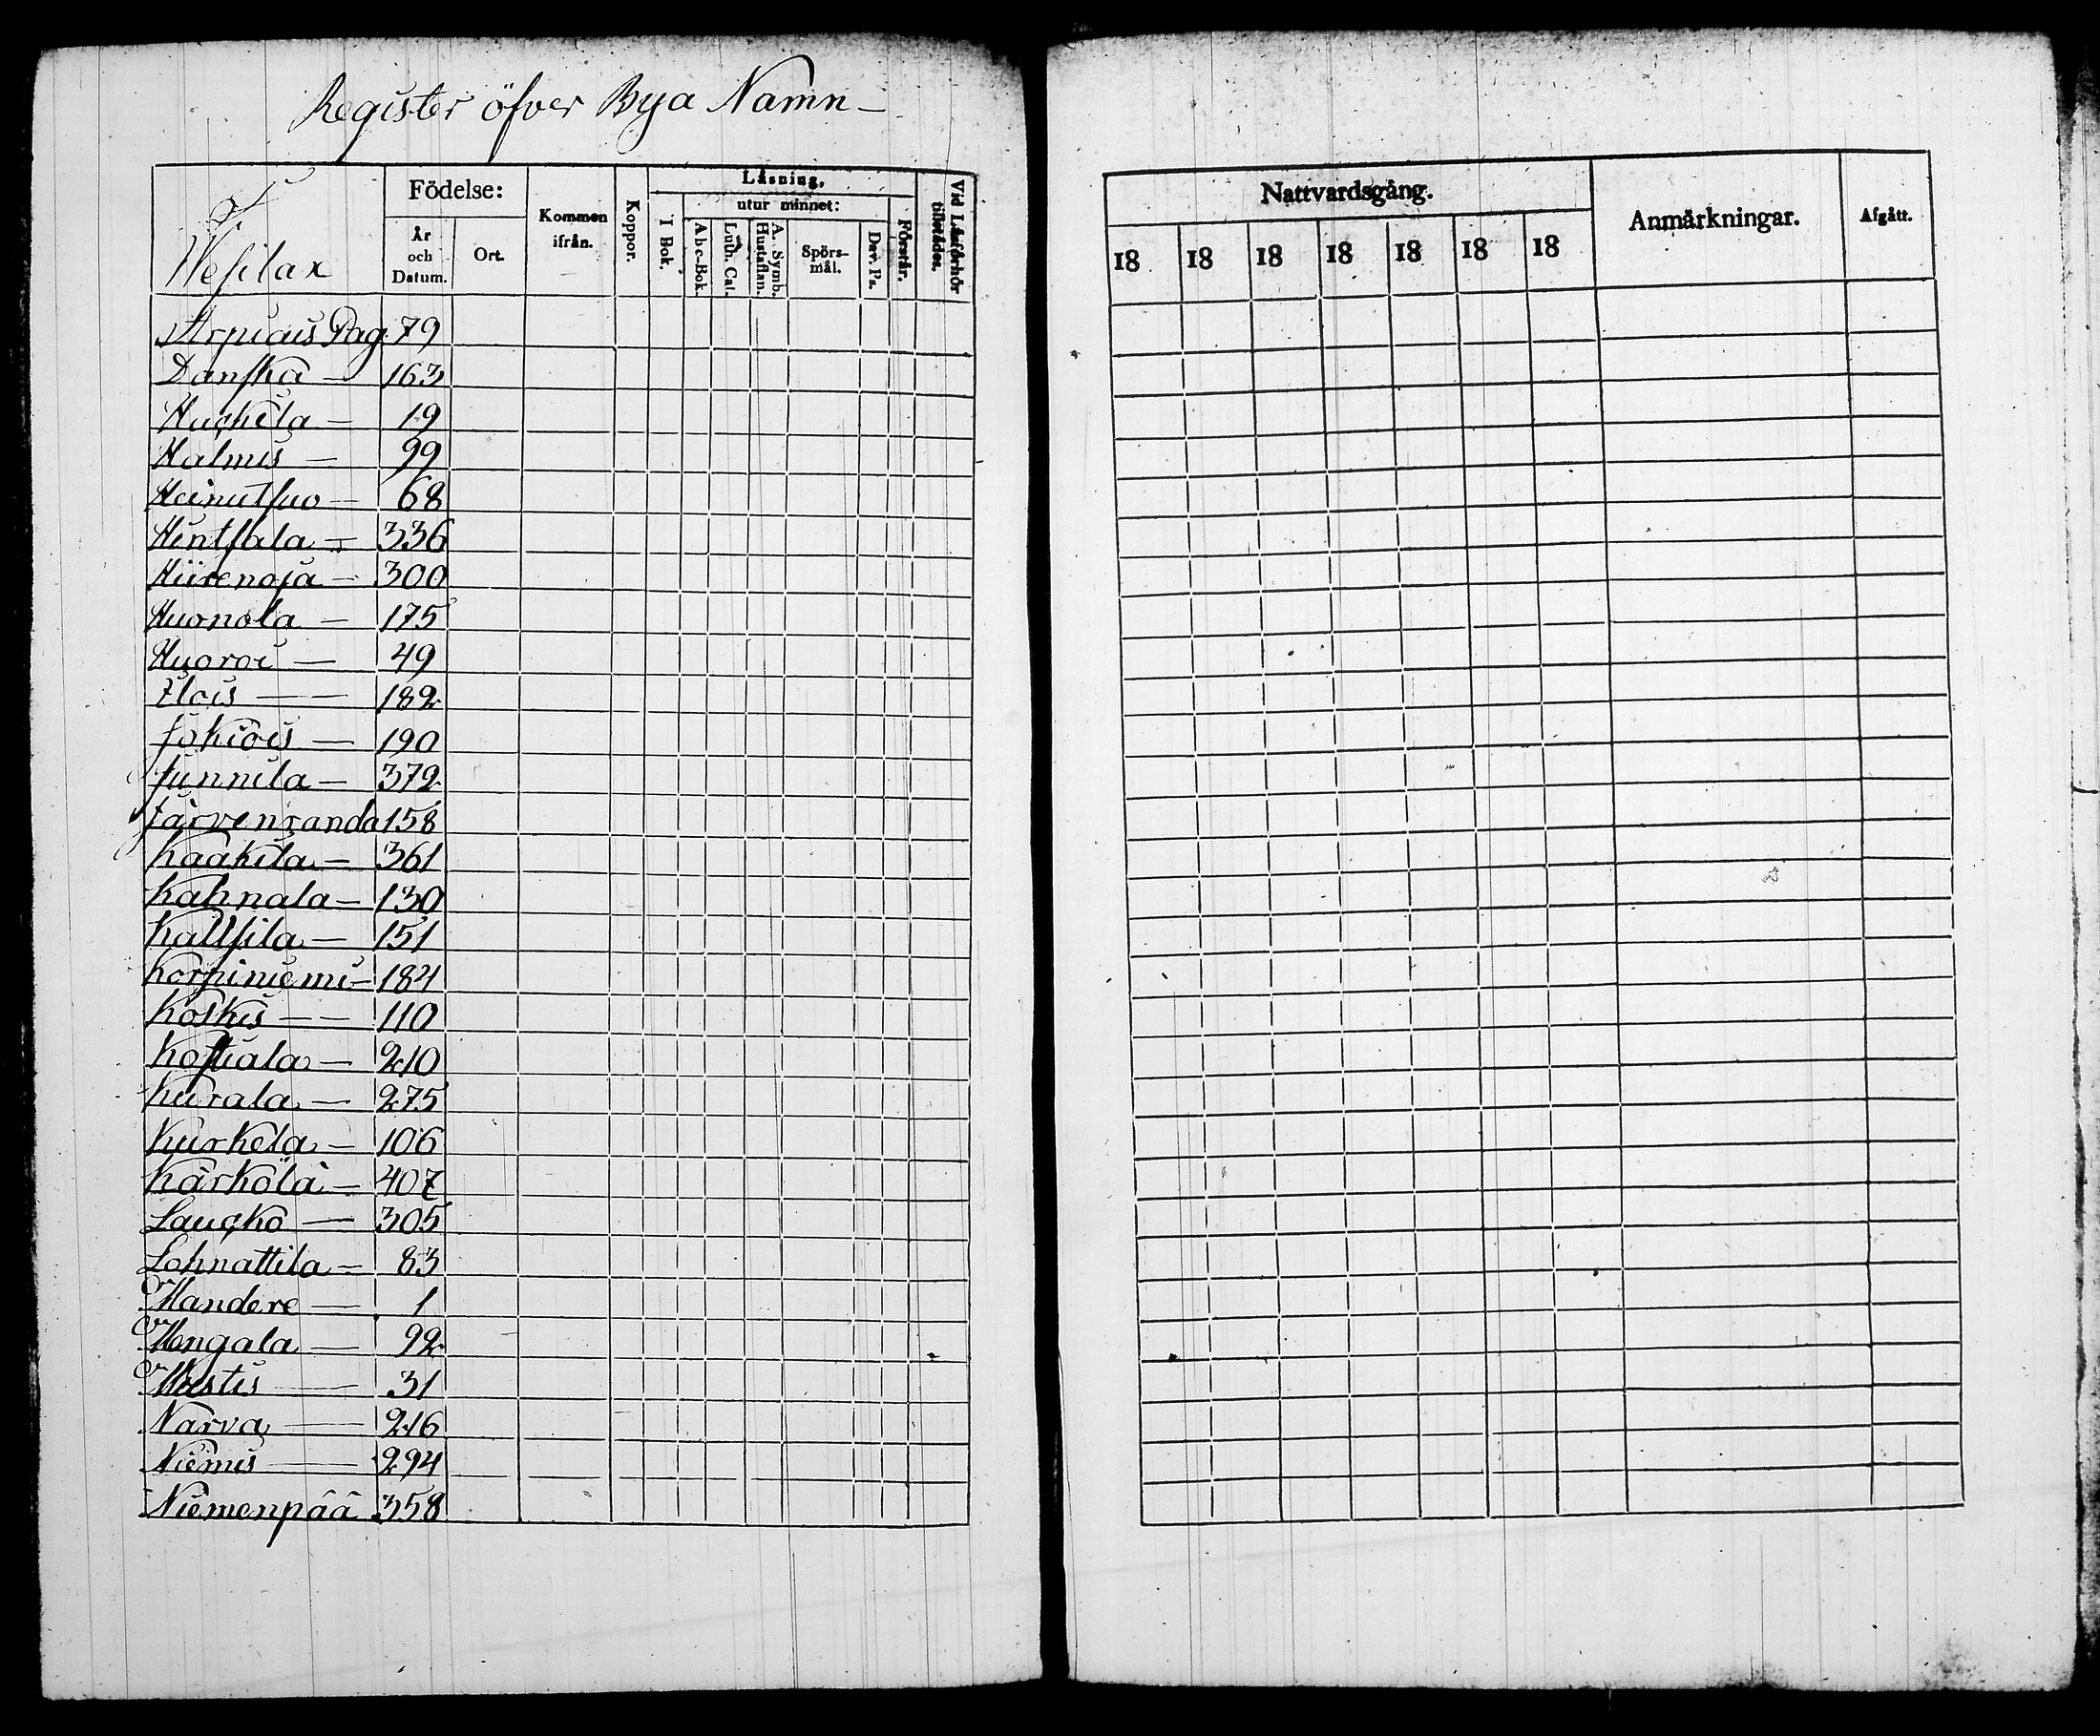 Register öfver Bya Namn
i
Wesilax
Födelse:
År
och
Datum.
Ort.
Kommen
ifrån.
Koppor.
Läsning,
utur minnet:
I Bok.
Abc-Bok.
Luth. Cat.
A. Symb.
Hustaflan.
Spörs-
mål.
Dav. Ps.
Förstår.
Vid Läsförhör
tillstädes.
Arpiais Pag. 79
Danska — 163
Huckila — 19
Halmis — 99
Heinutsuo — 68
Hintsala — 336
Hiirenoja — 300
Huonola — 175
Huoroi — 49
Ilois — 182
Jokiois — 190
Junnila — 372
Järvenranda 158
Kaakila — 361
Kahnala — 130
Kaltsila — 151
Korpiniemi — 184
Koskis — 110
Kostiala — 210
Kurala — 275
Kurkela — 106
Kärkölä — 407
Laucko — 305
Lahnattila — 83
Mandere — 1
Mengala — 92
Mustis — 31
Narva — 216
Niemis — 294
Niemenpää 358
Nattvardsgång.
18 18 18 18 18 18 18
Anmärkningar.
Afgått.